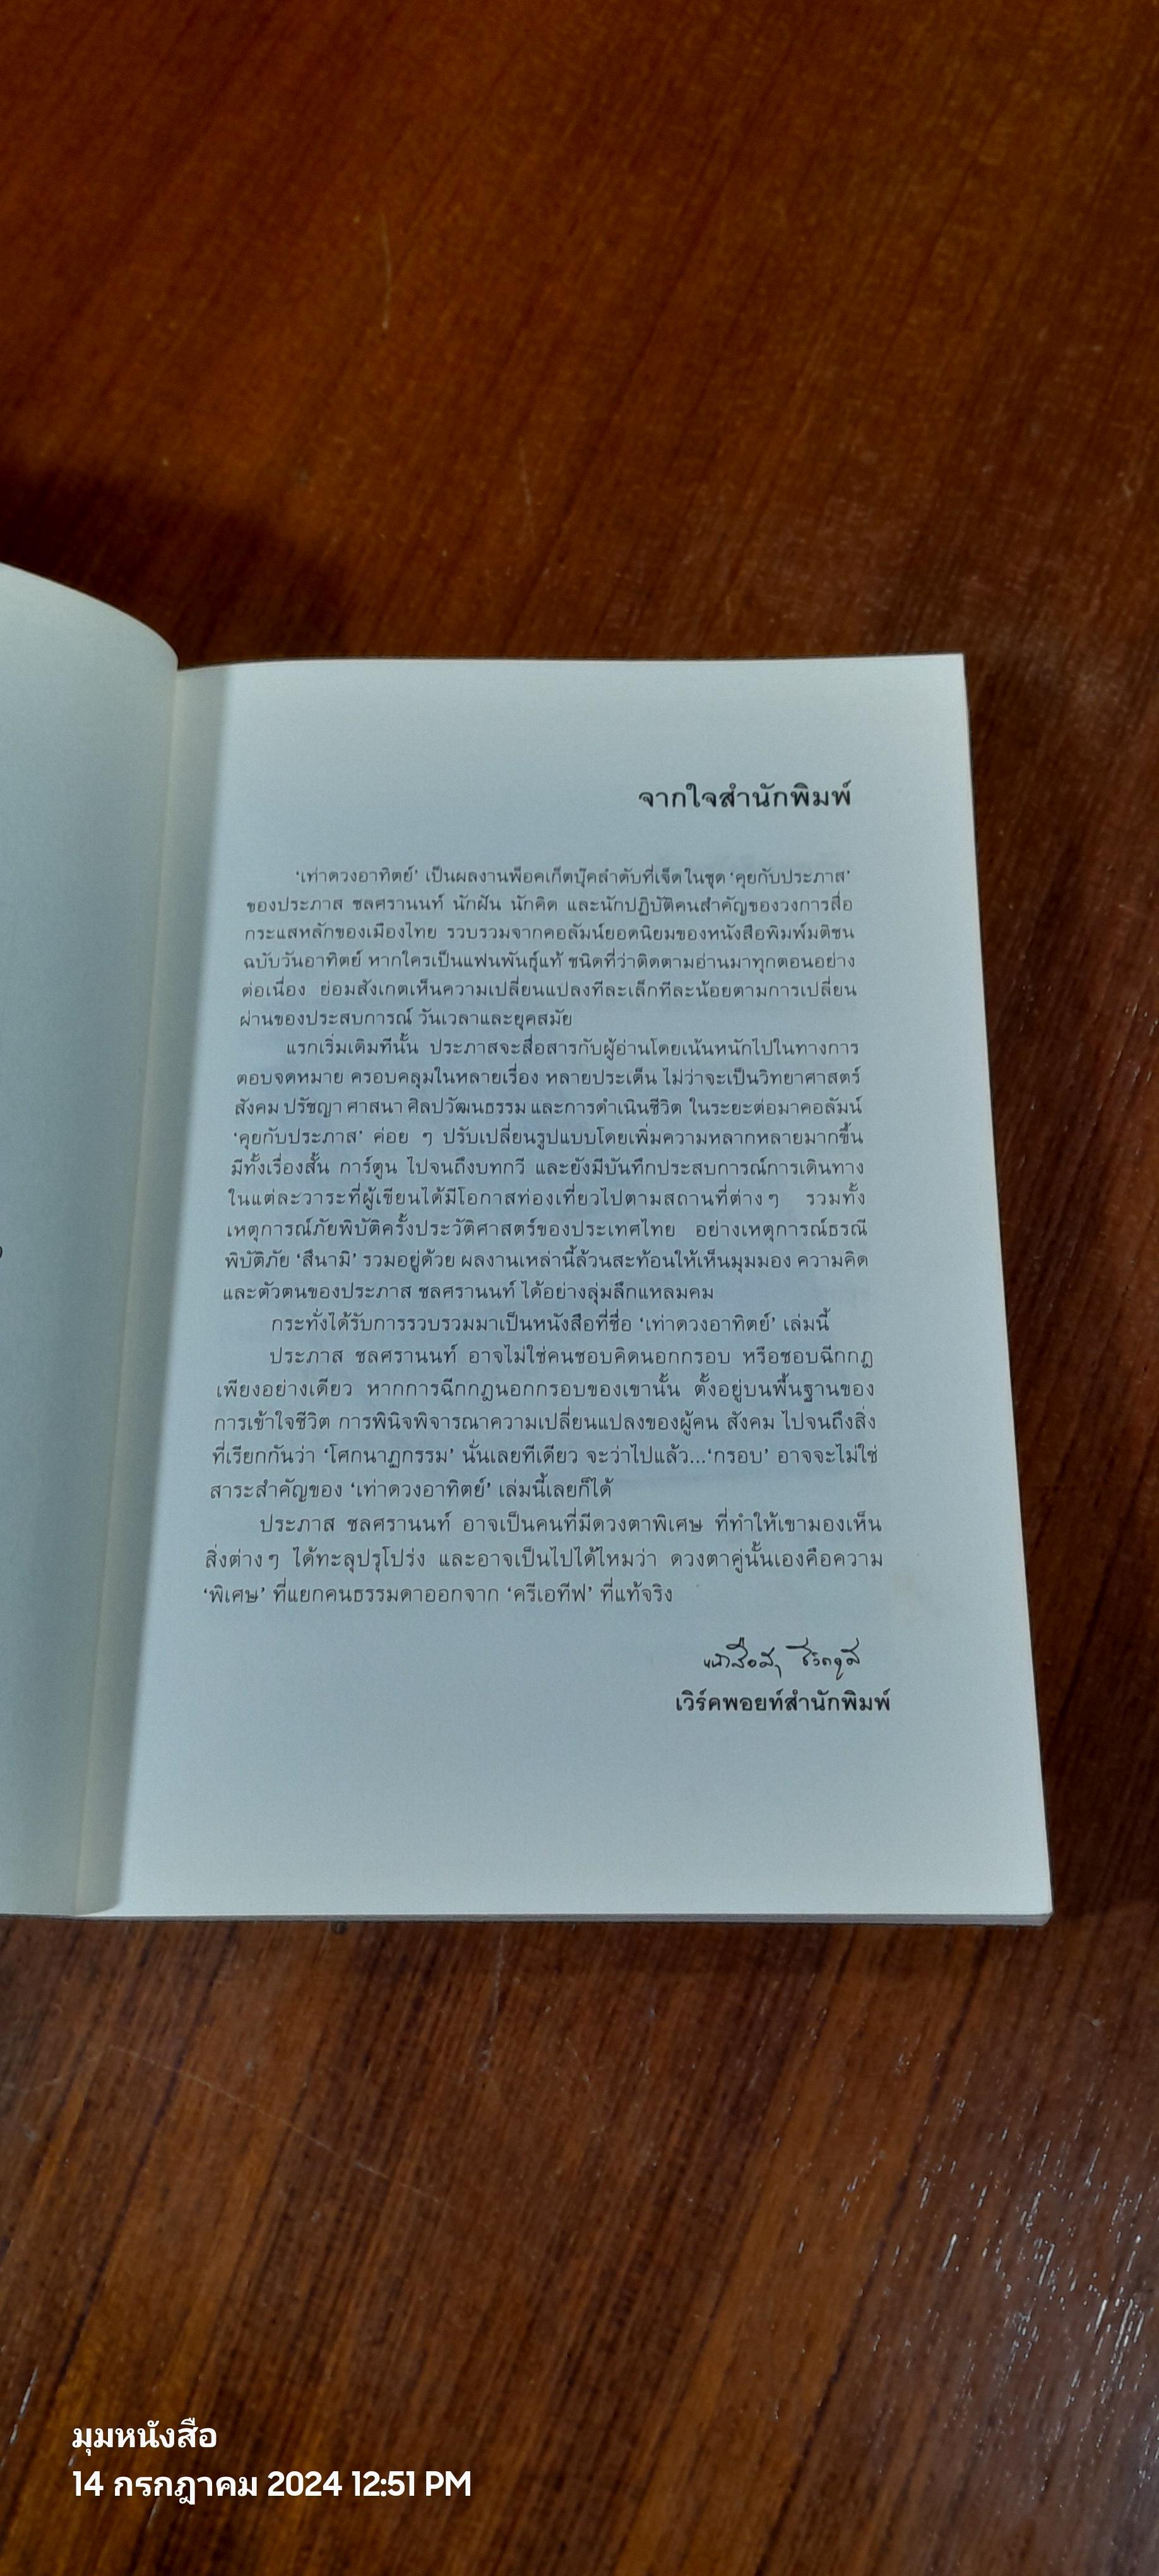 จากใจสำนักพิมพ์
‘เท่าดวงอาทิตย์’ เป็นผลงานพ็อคเก็ตบุ๊คลำดับที่เจ็ดในชุด ‘คุยกับประภาส’
ของประภาส ชลศรานนท์ นักฝัน นักคิด และนักปฏิบัติคนสำคัญของวงการสื่อ
กระแสหลักของเมืองไทย รวบรวมจากคอลัมน์ยอดนิยมของหนังสือพิมพ์มติชน
ฉบับวันอาทิตย์ หากใครเป็นแฟนพันธุ์แท้ ชนิดที่ว่าติดตามอ่านมาทุกตอนอย่าง
ต่อเนื่อง ย่อมสังเกตเห็นความเปลี่ยนแปลงทีละเล็กทีละน้อยตามการเปลี่ยน
ผ่านของประสบการณ์ วันเวลาและยุคสมัย
แรกเริ่มเดิมทีนั้น ประภาสจะสื่อสารกับผู้อ่านโดยเน้นหนักไปในทางการ
ตอบจดหมาย ครอบคลุมในหลายเรื่อง หลายประเด็น ไม่ว่าจะเป็นวิทยาศาสตร์
สังคม ปรัชญา ศาสนา ศิลปวัฒนธรรม และการดำเนินชีวิต ในระยะต่อมาคอลัมน์
‘คุยกับประภาส’ ค่อย ๆ ปรับเปลี่ยนรูปแบบโดยเพิ่มความหลากหลายมากขึ้น
มีทั้งเรื่องสั้น การ์ตูน ไปจนถึงบทกวี และยังมีบันทึกประสบการณ์การเดินทาง
ในแต่ละวาระที่ผู้เขียนได้มีโอกาสท่องเที่ยวไปตามสถานที่ต่าง ๆ รวมทั้ง
เหตุการณ์ภัยพิบัติครั้งประวัติศาสตร์ของประเทศไทย อย่างเหตุการณ์ธรณี
พิบัติภัย ‘สึนามิ’ รวมอยู่ด้วย ผลงานเหล่านี้ล้วนสะท้อนให้เห็นมุมมอง ความคิด
และตัวตนของประภาส ชลศรานนท์ ได้อย่างลุ่มลึกแหลมคม
กระทั่งได้รับการรวบรวมมาเป็นหนังสือที่ชื่อ ‘เท่าดวงอาทิตย์’ เล่มนี้
ประภาส ชลศรานนท์ อาจไม่ใช่คนชอบคิดนอกกรอบ หรือชอบฉีกกฎ
เพียงอย่างเดียว หากการฉีกกฎนอกกรอบของเขานั้น ตั้งอยู่บนพื้นฐานของ
การเข้าใจชีวิต การพินิจพิจารณาความเปลี่ยนแปลงของผู้คน สังคม ไปจนถึงสิ่ง
ที่เรียกกันว่า ‘โศกนาฏกรรม’ นั่นเลยทีเดียว จะว่าไปแล้ว...‘กรอบ’ อาจจะไม่ใช่
สาระสำคัญของ ‘เท่าดวงอาทิตย์’ เล่มนี้เลยก็ได้
ประภาส ชลศรานนท์ อาจเป็นคนที่มีดวงตาพิเศษ ที่ทำให้เขามองเห็น
สิ่งต่าง ๆ ได้ทะลุปรุโปร่ง และอาจเป็นไปได้ไหมว่า ดวงตาคู่นั้นเองคือความ
‘พิเศษ’ ที่แยกคนธรรมดาออกจาก ‘ครีเอทีฟ’ ที่แท้จริง
เวิร์คพอยท์สำนักพิมพ์
มุมหนังสือ
14 กรกฎาคม 2024 12:51 PM